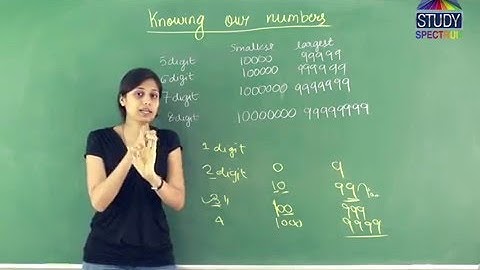 Knowing our numbers
STUDY
SPECTRUM
smallest largest
5 digit 10000 99999
6 digit 100000 999999
7 digit 1000000 9999999
8 digit 10000000 99999999
1 digit 0 9
2 digit 10 99
3 " 100 999
4 1000 9999